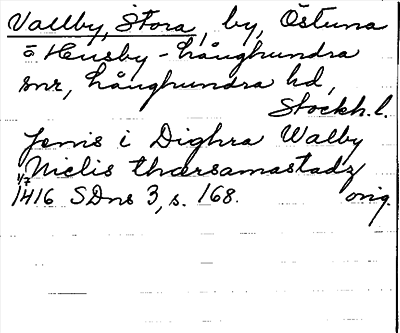 Vallby, Stora, by, Östuna
o Husby-Långhundra
snr, Långhundra hd,
Stockh. l.
Jenis i Dighra Walby
Niclis thorsamastadz
1/7 1416 SDns 3, s. 168. orig.